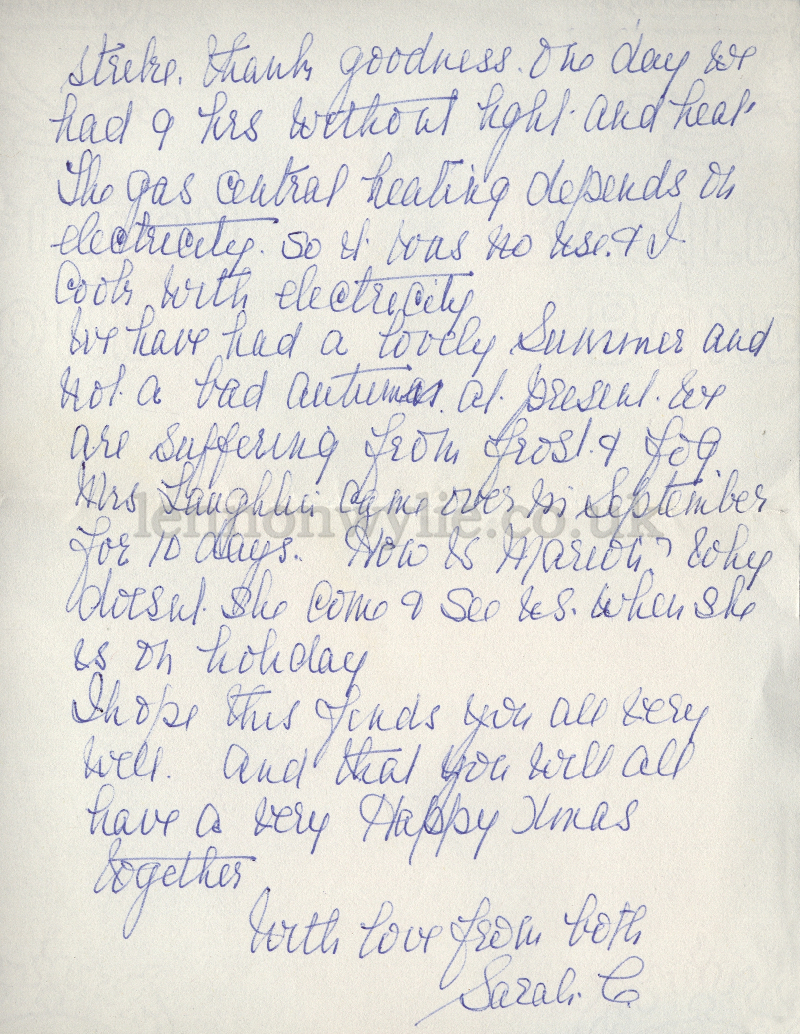 strike. thank goodness. One day we
had 9 hrs without light. and heat.
The gas central heating depends on
electricity. so it was no use. & I
Cook with electricity
We have had a lovely Summer and
not. a bad autumn. at. present. we
are suffering from frost. & fog
Mrs Laughlin came over in September
lennonwylie.co.uk
for 10 days. How is Marion? Why
doesnt. She Come & See us. when she
is on holiday
I hope this finds you all very
well. and that you will all
have a very Happy Xmas
together
With love from both
Sarah. C.